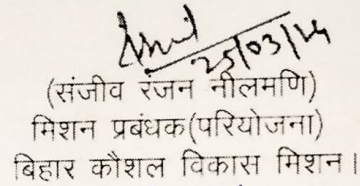 25/03/24
(संजीव रंजन नीलमणि)
मिशन प्रबंधक(परियोजना)
बिहार कौशल विकास मिशन।